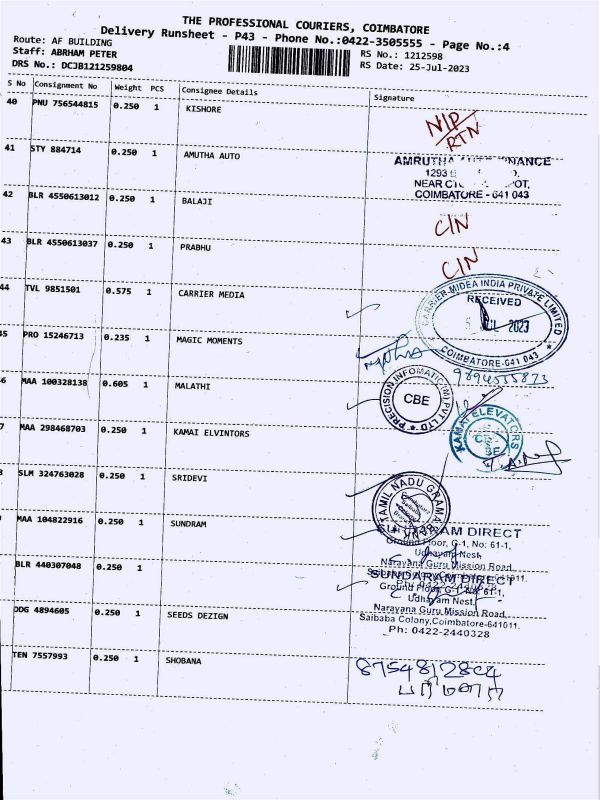 THE PROFESSIONAL COURIERS, COIMBATORE
Delivery Runsheet - P43 - Phone No.:0422-3505555 - Page No.:4
Route: AF BUILDING
RS No.: 1212598
Staff: ABRHAM PETER
RS Date: 25-Jul-2023
DRS No.: DCJB121259804
S No Consignment No Weight PCS Consignee Details Signature
40 PNU 756544815 0.250 1 KISHORE
N/P
RTN
41 STY 884714 0.250 1 AMUTHA AUTO
AMRUTHA NANCE
1293
NEAR OT,
COIMBATORE - 641 043
42 BLR 4550613012 0.250 1 BALAJI
C/N
43 BLR 4550613037 0.250 1 PRABHU
C/N
44 TVL 9851501 0.575 1 CARRIER MEDIA
CARRIER MIDEA INDIA PRIVATE LIMITED
RECEIVED
JUL 2023
COIMBATORE-641 043
45 PRO 15246713 0.235 1 MAGIC MOMENTS
9894555873
6 MAA 100328138 0.605 1 MALATHI
PRECISION INFOMATIC (M) PVT LTD
CBE
7 MAA 298468703 0.250 1 KAMAI ELVINTORS
KAMAT ELEVATORS
CBE
8 SLM 324763028 0.250 1 SRIDEVI
TAMIL NADU GRAMA BANK
MAA 104822916 0.250 1 SUNDRAM
SUNDARAM DIRECT
Ground Floor, G-1, No: 61-1,
Udhayam Nest,
Narayana Guru Mission Road,
Saibaba Colony, Coimbatore-641011.
Ph: 0422-2440328
BLR 440307048 0.250 1
SUNDARAM DIRECT
Ground Floor, G-1, No: 61-1,
Udhayam Nest,
Narayana Guru Mission Road,
Saibaba Colony,Coimbatore-641011.
Ph: 0422-2440328
ODG 4894605 0.250 1 SEEDS DEZIGN
TEN 7557993 0.250 1 SHOBANA
8754812804
பரிமளா